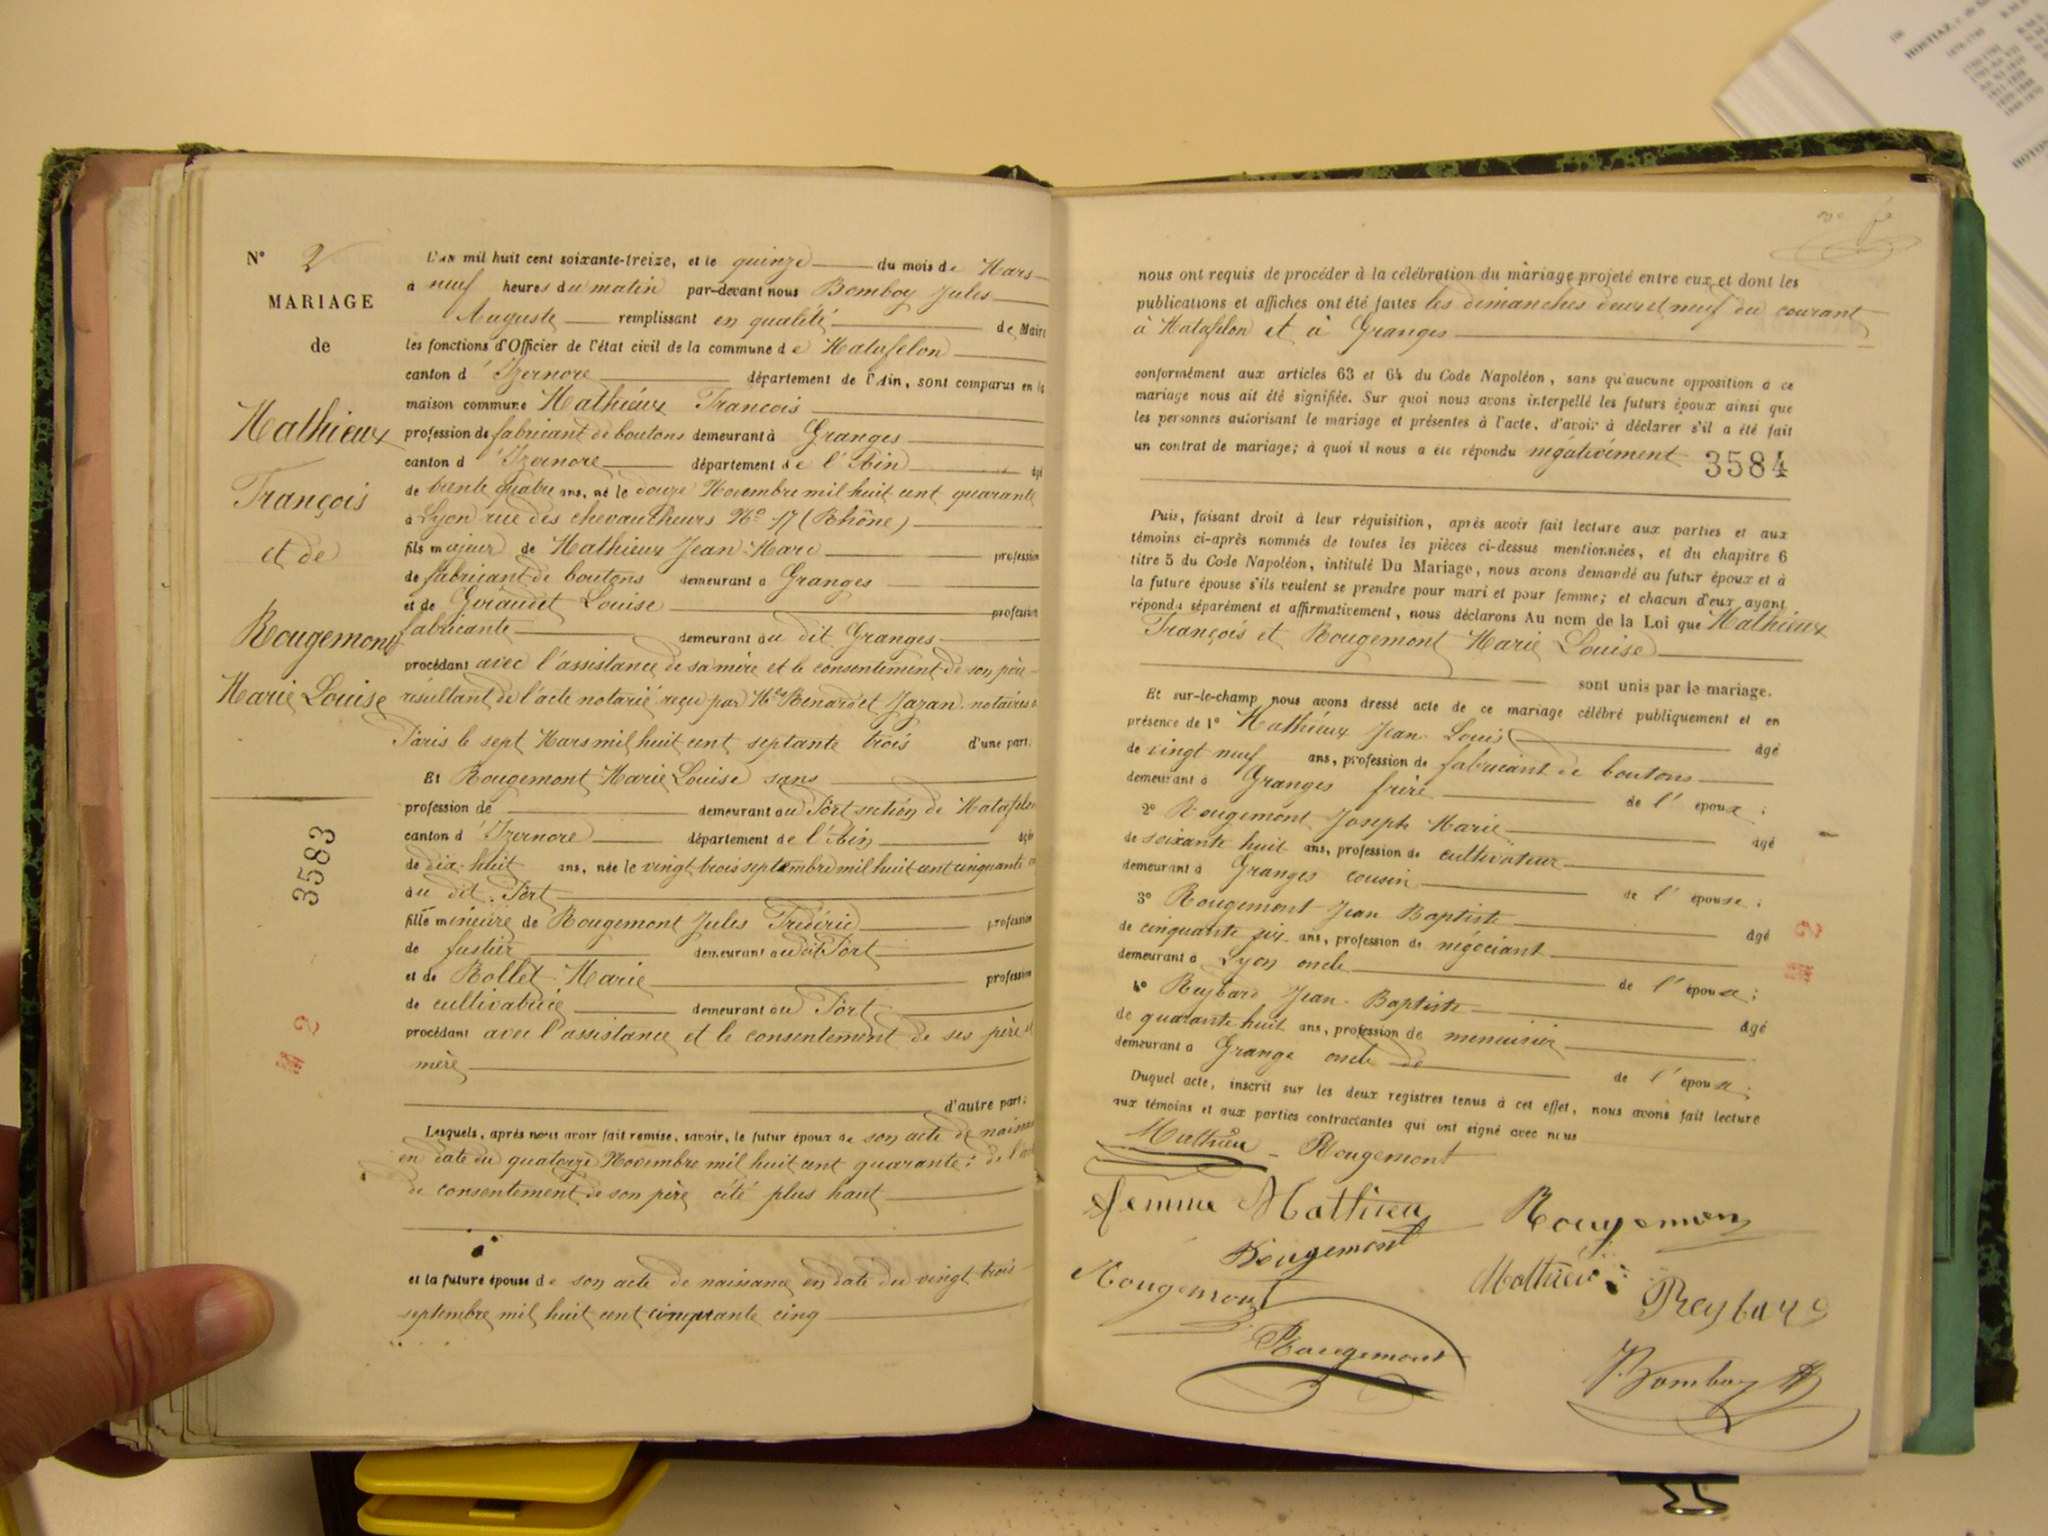 N° 2
MARIAGE
de
Mathieux
François
et de
Rougemont
Marie Louise
3583
M 2
L'an mil huit cent soixante-treize, et le quinze du mois de Mars
a neuf heures du matin par-devant nous Bomboy Jules
Auguste remplissant en qualité de Maire
les fonctions d'Officier de l'état civil de la commune de Matafelon
canton d'Izernore département de l'Ain, sont comparus en la
maison commune Mathieux François
profession de fabricant de boutons demeurant à Granges
canton d'Izernore département de l'Ain âgé
de trente quatre ans, né le douze Novembre mil huit cent quarante
à Lyon rue des chevaucheurs N° 17 (Rhône)
fils majeur de Mathieux Jean Marc profession
de fabricant de boutons demeurant a Granges
et de Giraudet Louise profession
fabricante demeurant au dit Granges
procédant avec l'assistance de sa mère et le consentement de son père
résultant de l'acte notarié reçu par Benard et Jazan notaires
Paris le sept Mars mil huit cent septante trois d'une part.
Et Rougemont Marie Louise sans
profession de demeurant au Port section de Matafelon
canton d'Izernore département de l'Ain âgée
de dix-huit ans, née le vingt trois septembre mil huit cent cinquante
au dit Port
fille mineure de Rougemont Jules Frédéric profession
de fustier demeurant au dit Port
et de Rollet Marie profession
de cultivatrice demeurant au Port
procédant avec l'assistance et le consentement de ses père et
mère
d'autre part;
Lesquels, après nous avoir fait remise, savoir, le futur époux de son acte de
en date du quatorze Novembre mil huit cent quarante; de
de consentement de son père cité plus haut
et la future épouse de son acte de naissance en date du vingt trois
septembre mil huit cent cinquante cinq
nous ont requis de procéder à la célébration du mariage projeté entre eux et dont les
publications et affiches ont été faites les dimanches deux et neuf du courant
à Matafelon et à Granges
conformément aux articles 63 et 64 du Code Napoléon, sans qu'aucune opposition a ce
mariage nous ait été signifiée. Sur quoi nous avons interpellé les futurs époux ainsi que
les personnes autorisant le mariage et présentes à l'acte, d'avoir à déclarer s'il a été fait
un contrat de mariage; à quoi il nous a été répondu négativement
3584
Puis, faisant droit à leur réquisition, après avoir fait lecture aux parties et aux
témoins ci-après nommés de toutes les pièces ci-dessus mentionnées, et du chapitre 6
titre 5 du Code Napoléon, intitulé Du Mariage, nous avons demandé au futur époux et à
la future épouse s'ils veulent se prendre pour mari et pour femme; et chacun d'eux ayant
répondu séparément et affirmativement, nous déclarons Au nom de la Loi que Mathieux
François et Rougemont Marie Louise
sont unis par le mariage.
Et sur-le-champ nous avons dressé acte de ce mariage célébré publiquement et en
présence de 1° Mathieux Jean Louis âgé
de vingt neuf ans, profession de fabricant de boutons
demeurant à Granges frère de l'époux;
2° Rougemont Joseph Marie âgé
de soixante huit ans, profession de cultivateur
demeurant à Granges cousin de l'épouse;
3° Rougemont Jean Baptiste âgé
de cinquante six ans, profession de négociant
demeurant à Lyon oncle de l'épouse;
4° Reybard Jean-Baptiste âgé
de quarante huit ans, profession de menuisier
demeurant a Grange oncle de de l'épouse;
Duquel acte, inscrit sur les deux registres tenus à cet effet, nous avons fait lecture
aux témoins et aux parties contractantes qui ont signé avec nous
Mathieu Rougemont
femme Mathieu Rougemon
Rougemont
Rougemont Mathieu Reybard
Rougemont
Bomboy